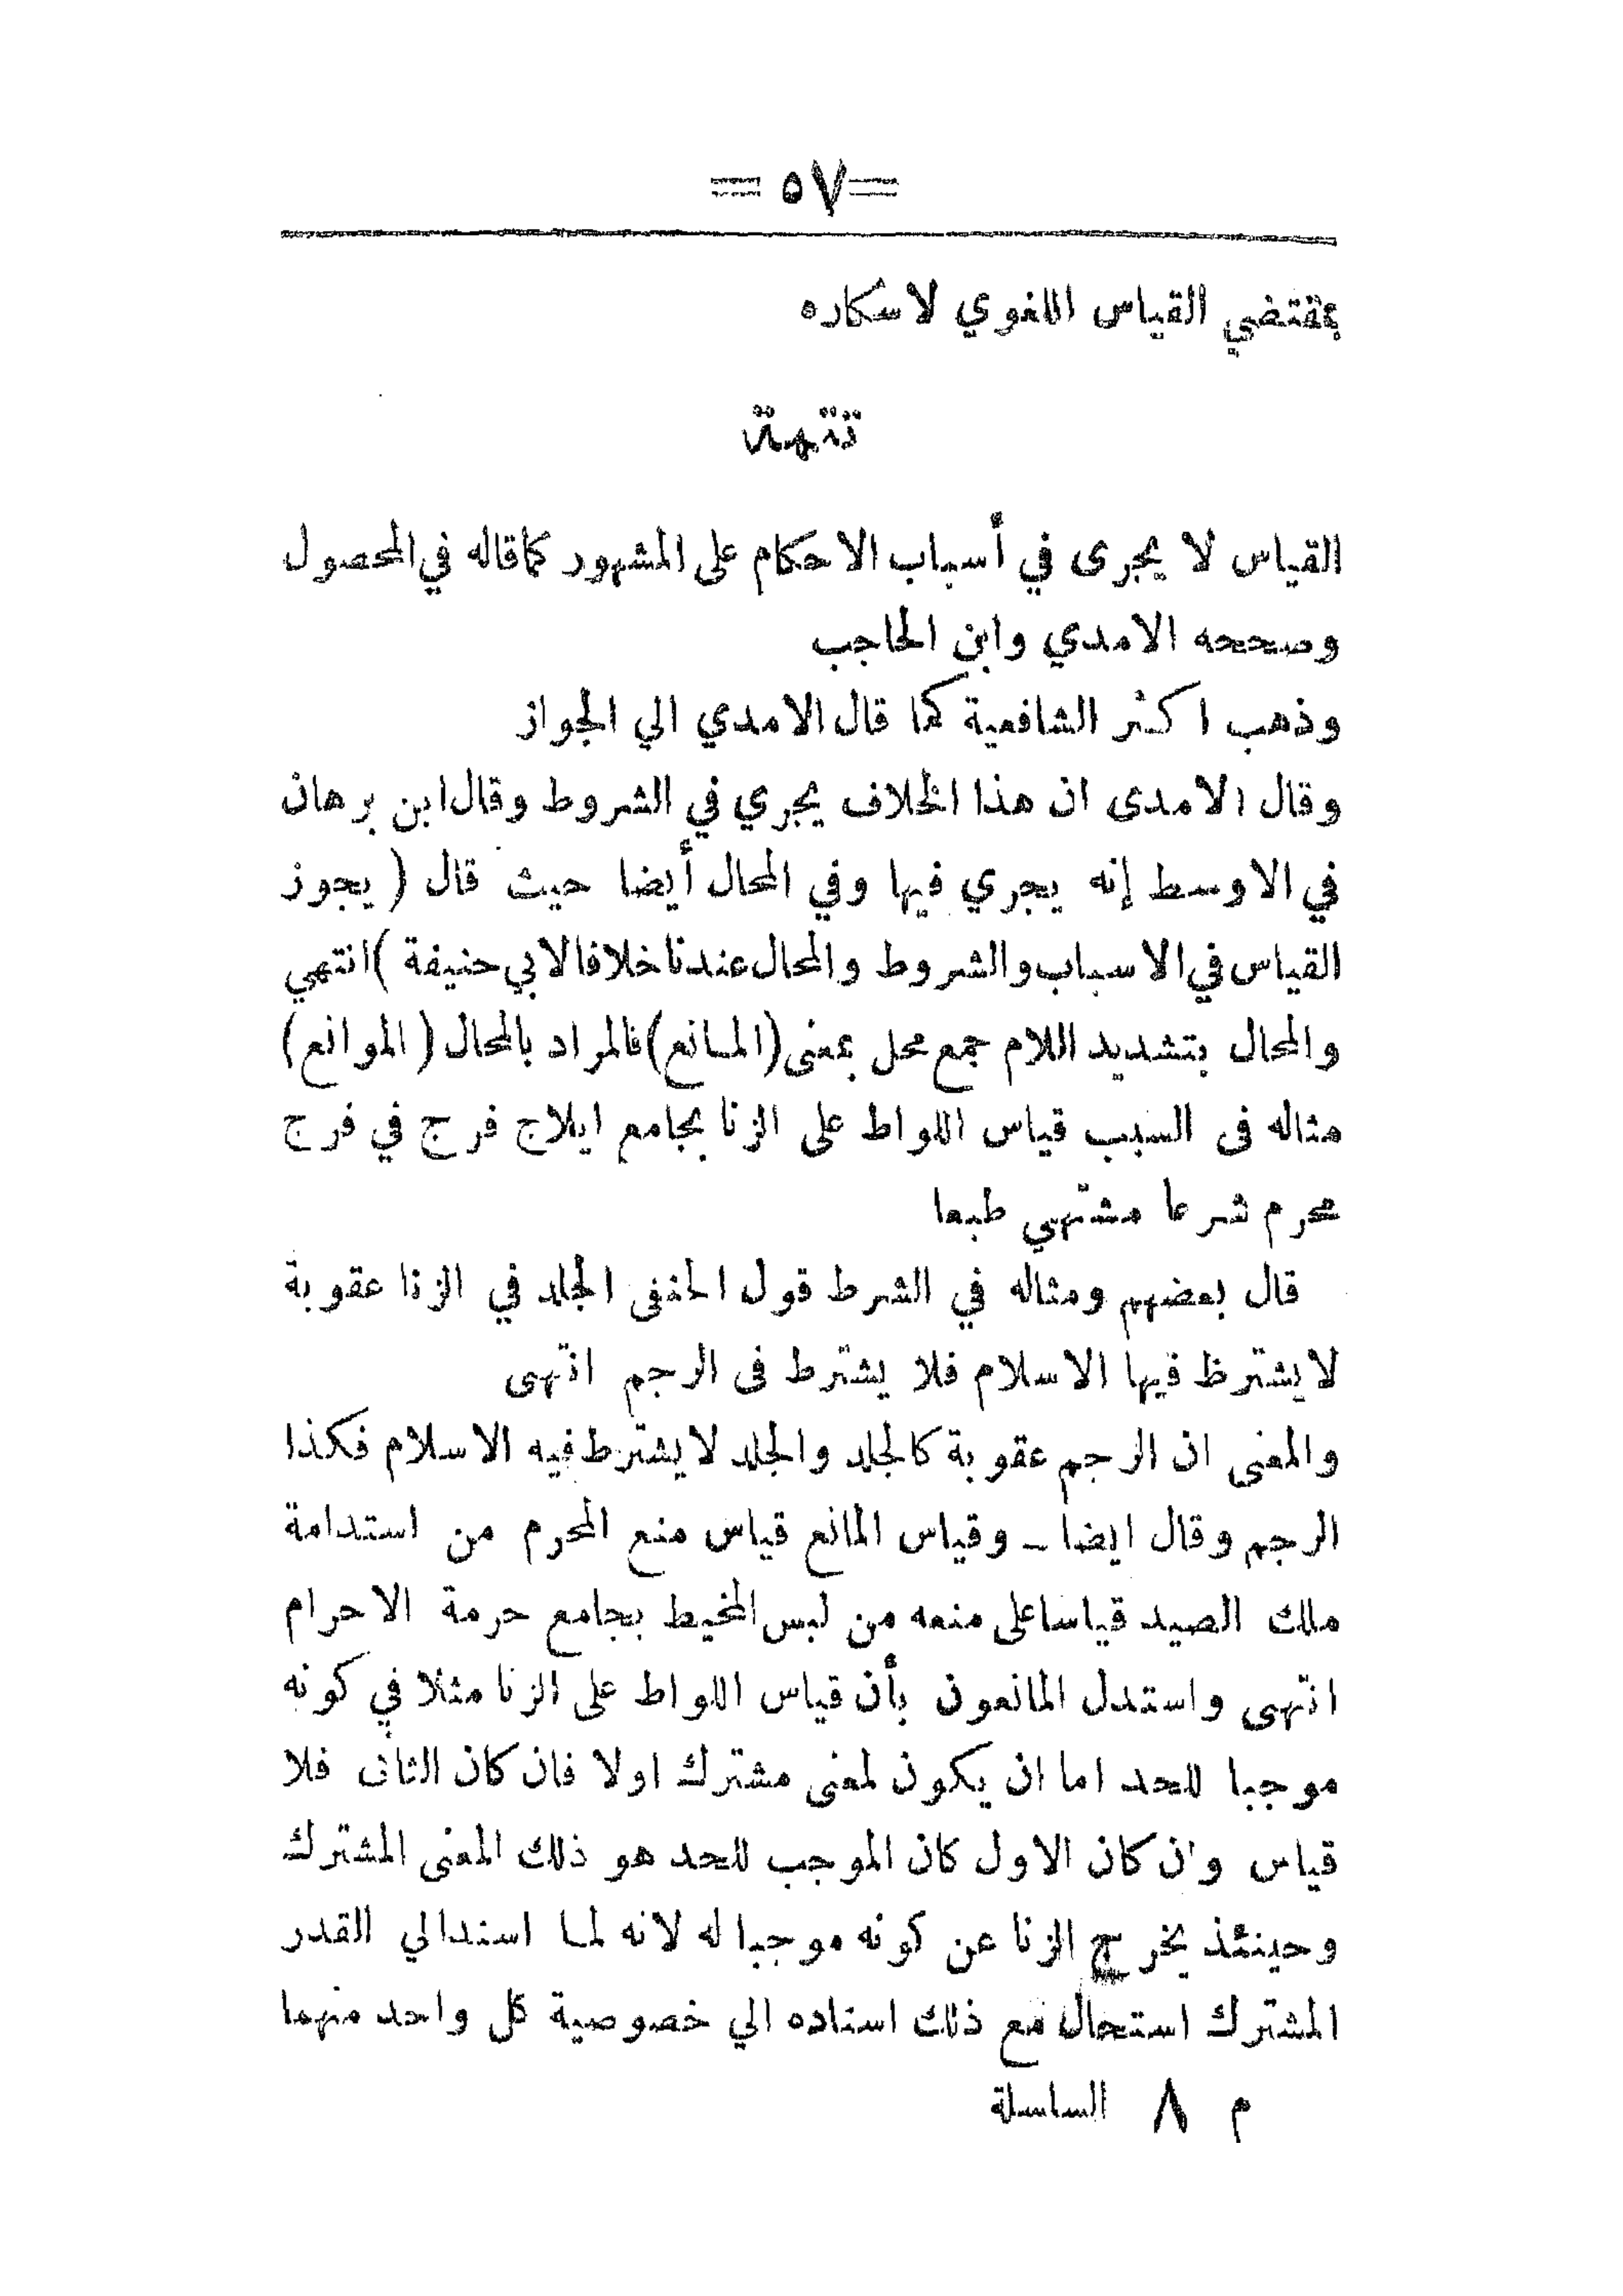 = ٥٧ =
بمقتضي القياس اللغوي لاسكاره
تتمة
القياس لا يجرى في أسباب الاحكام على المشهور كما قاله في المحصول
وصححه الامدي وابن الحاجب
وذهب اكثر الشافعية كما قال الامدي الي الجواز
وقال الامدى ان هذا الخلاف يجري في الشروط وقال ابن برهان
في الاوسط إنه يجري فيها وفي المحال أيضا حيث قال ( يجوز
القياس في الاسباب والشروط والمحال عندنا خلافا لابي حنيفة ) انتهي
والمحال بتشديد اللام جمع محل بمعنى (المانع) فالمراد بالمحال ( الموانع )
مثاله فى السبب قياس اللواط على الزنا بجامع ايلاج فرج في فرج
محرم شرعا مشتهي طبعا
قال بعضهم ومثاله في الشرط قول الحنفى الجلد في الزنا عقوبة
لا يشترظ فيها الاسلام فلا يشترط فى الرجم انتهى
والمعنى ان الرجم عقوبة كالجلد والجلد لا يشترط فيه الاسلام فكذا
الرجم وقال ايضا – وقياس المانع قياس منع المحرم من استدامة
ملك الصيد قياسا على منعه من لبس المخيط بجامع حرمة الاحرام
انتهى واستدل المانعون بأن قياس اللواط على الزنا مثلا في كونه
موجبا للحد اما ان يكون لمعنى مشترك اولا فان كان الثانى فلا
قياس وان كان الاول كان الموجب للحد هو ذلك المعنى المشترك
وحينئذ يخرج الزنا عن كونه موجبا له لانه لما استدالي القدر
المشترك استحال مع ذلك اسناده الي خصوصية كل واحد منهما
م ٨ السلسلة